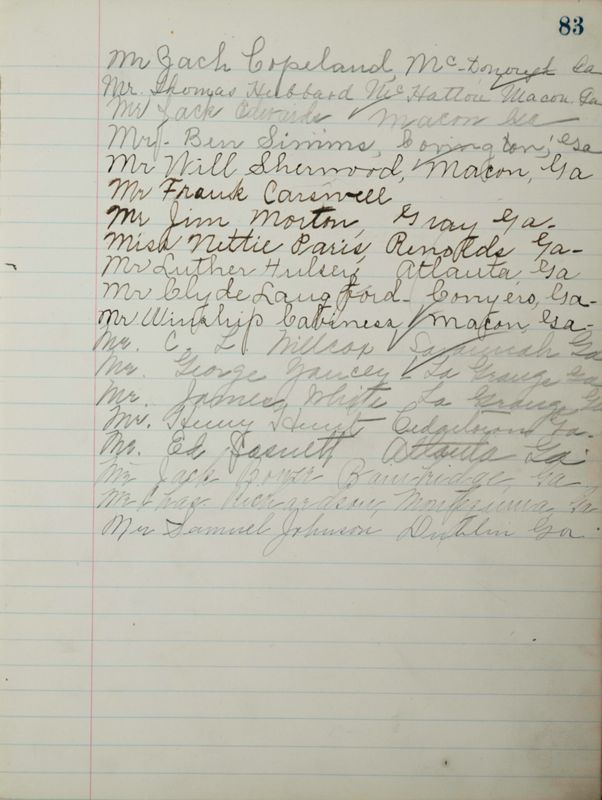 83
Mr Zach Copeland, Mc-Donough Ga
Mr. Thomas Hubbard McHatton Macon. Ga
Mr Jack Edwards Macon Ga
Mr. Ben Simms, Covington, Ga
Mr Will Sherwood, Macon, Ga
Mr Frank Carswell
Mr Jim Morton, Gray Ga-
Miss Nettie Paris, Renolds Ga-
Mr Luther Hulsey, Atlanta, Ga
Mr Clyde Langford- Conyers, Ga-
Mr Winship Cabiness, Macon, Ga-
Mr. C. L. Willcox Savannah Ga
Mr. George Yancey La Grange Ga
Mr. James White La Grange Ga
Mr. Henry Hunt Cedartown Ga-
Mr. Ed Atlanta Ga
Mr Jack Bainbridge, Ga
Mr Chas. Richardson, Montezuma, Ga
Mr Samuel Johnson Dublin Ga